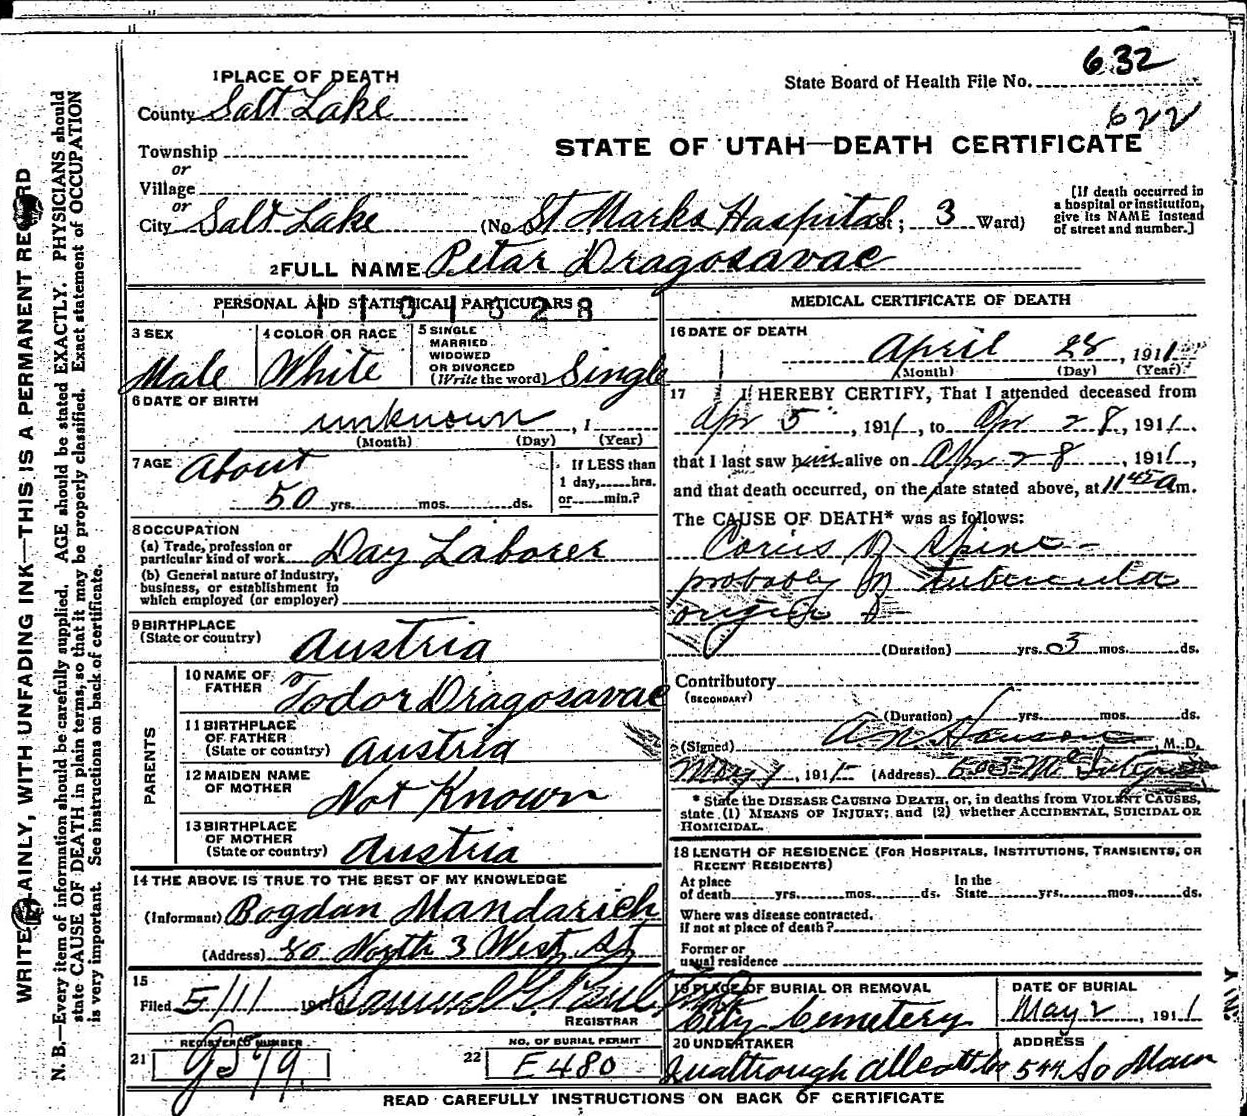 632
1 PLACE OF DEATH
State Board of Health File No.
County Salt Lake
622
Township
STATE OF UTAH—DEATH CERTIFICATE
or
Village
or
City Salt Lake (No St Marks Hospital St; 3 Ward)
[If death occurred in
a hospital or institution,
give its NAME instead
of street and number.]
2 FULL NAME Petar Dragosavac
PERSONAL AND STATISTICAL PARTICULARS
3 SEX
Male
4 COLOR OR RACE
White
5 SINGLE
MARRIED
WIDOWED
OR DIVORCED
(Write the word) Single
6 DATE OF BIRTH
unknown , 1
(Month) (Day) (Year)
7 AGE About
50 yrs. mos. ds.
If LESS than
1 day, hrs.
or min.?
8 OCCUPATION
(a) Trade, profession or
particular kind of work Day Laborer
(b) General nature of industry,
business, or establishment in
which employed (or employer)
9 BIRTHPLACE
(State or country)
Austria
PARENTS
10 NAME OF
FATHER Todor Dragosavac
11 BIRTHPLACE
OF FATHER
(State or country) Austria
12 MAIDEN NAME
OF MOTHER
Not Known
13 BIRTHPLACE
OF MOTHER
(State or country) Austria
14 THE ABOVE IS TRUE TO THE BEST OF MY KNOWLEDGE
(Informant) Bogdan Mandarich
(Address) 80 North 3 West St
15
Filed 5/1/ 191 Samuel G. Paul
REGISTRAR
21 REGISTERED NUMBER
22 NO. OF BURIAL PERMIT
E 480
MEDICAL CERTIFICATE OF DEATH
16 DATE OF DEATH
April 28 , 1911
(Month) (Day) (Year)
17 I HEREBY CERTIFY, That I attended deceased from
Apr 5 , 1911, to Apr 28, 1911,
that I last saw him alive on Apr 28, 1911,
and that death occurred, on the date stated above, at 11 45 a m.
The CAUSE OF DEATH* was as follows:
Caries of Spine -
probably of tubercular
origin
(Duration) yrs. 3 mos. ds.
Contributory
(SECONDARY)
(Duration) yrs. mos. ds.
(Signed) A. N. Hanson M. D.
May 1, 191 (Address)
* State the DISEASE CAUSING DEATH, or, in deaths from VIOLENT CAUSES,
state (1) MEANS OF INJURY; and (2) whether ACCIDENTAL, SUICIDAL OR
HOMICIDAL.
18 LENGTH OF RESIDENCE (FOR HOSPITALS, INSTITUTIONS, TRANSIENTS, OR
RECENT RESIDENTS)
At place
of death yrs. mos. ds.
In the
State yrs. mos. ds.
Where was disease contracted,
if not at place of death?
Former or
usual residence
19 PLACE OF BURIAL OR REMOVAL
City Cemetery
DATE OF BURIAL
May 2 , 1911
20 UNDERTAKER
ADDRESS
544 So Main
READ CAREFULLY INSTRUCTIONS ON BACK OF CERTIFICATE
WRITE PLAINLY, WITH UNFADING INK—THIS IS A PERMANENT RECORD
N. B.—Every item of information should be carefully supplied. AGE should be stated EXACTLY. PHYSICIANS should
state CAUSE OF DEATH in plain terms, so that it may be properly classified. Exact statement of OCCUPATION
is very important. See instructions on back of certificate.